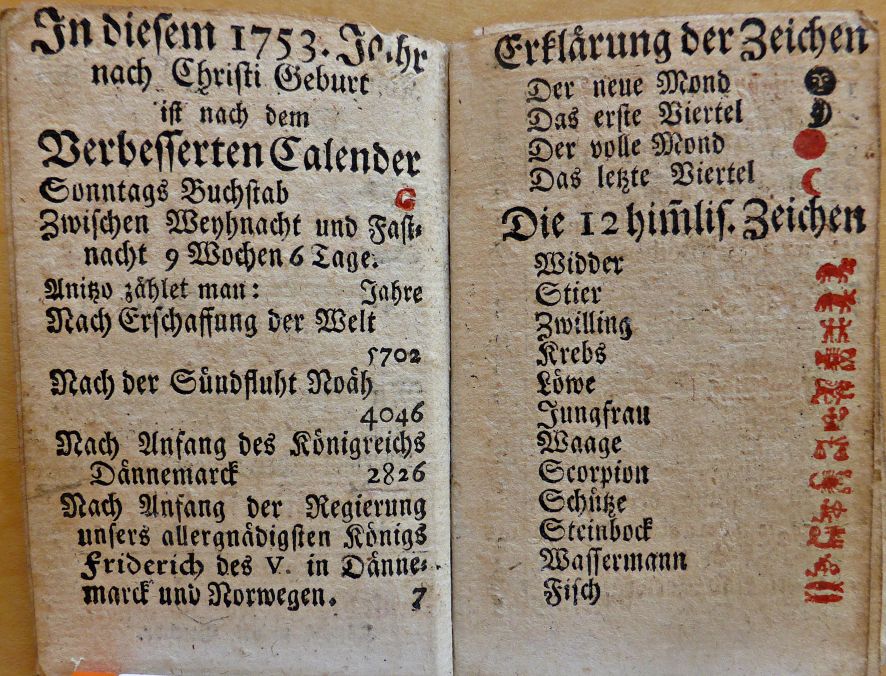 In dieſem 1753. Jahr
nach Chriſti Geburt
iſt nach dem
Verbeſſerten Calender
Sonntags Buchſtab G
Zwiſchen Weyhnacht und Faſt⸗
nacht 9 Wochen 6 Tage.
Anitzo zählet man: Jahre
Nach Erſchaffung der Welt
5702
Nach der Sündfluht Noäh
4046
Nach Anfang des Königreichs
Dännemarck 2826
Nach Anfang der Regierung
unſers allergnädigſten Königs
Friderich des V. in Dänne⸗
marck und Norwegen. 7
Erklärung der Zeichen
Der neue Mond
Das erſte Viertel
Der volle Mond
Das letzte Viertel
Die 12 him̄liſ. Zeichen
Widder
Stier
Zwilling
Krebs
Löwe
Jungfrau
Waage
Scorpion
Schütze
Steinbock
Waſſermann
Fiſch